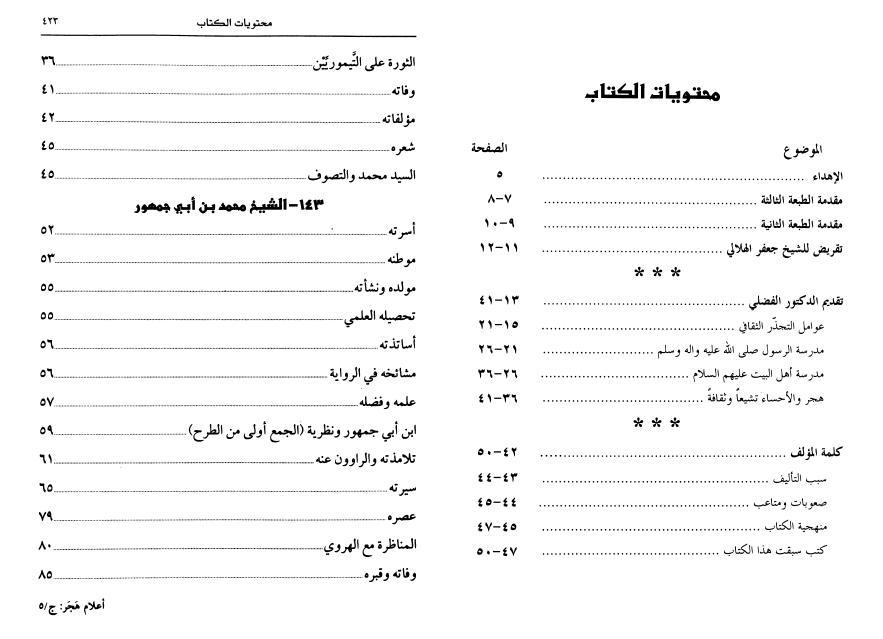 محتويات الكتاب
الموضوع الصفحة
الإهداء ................ ٥
مقدمة الطبعة الثالثة ................ ٧-٨
مقدمة الطبعة الثانية ................ ٩-١٠
تقريض للشيخ جعفر الهلالي ................ ١١-١٢
* * *
تقديم الدكتور الفضلي ................ ١٣-٤١
عوامل التجذّر الثقافي ................ ١٥-٢١
مدرسة الرسول صلى الله عليه واله وسلم ................ ٢١-٢٦
مدرسة أهل البيت عليهم السلام ................ ٢٦-٣٦
هجر والأحساء تشيعاً وثقافةً ................ ٣٦-٤١
* * *
كلمة المؤلف ................ ٤٢-٥٠
سبب التأليف ................ ٤٣-٤٤
صعوبات ومتاعب ................ ٤٤-٤٥
منهجية الكتاب ................ ٤٥-٤٧
كتب سبقت هذا الكتاب ................ ٤٧-٥٠
محتويات الكتاب ٤٢٣
الثورة على التَّيموريَّيْن ................ ٣٦
وفاته ................ ٤١
مؤلفاته ................ ٤٢
شعره ................ ٤٥
السيد محمد والتصوف ................ ٤٥
١٤٣-الشيخ محمد بن أبي جمهور
أسرته ................ ٥٢
موطنه ................ ٥٣
مولده ونشأته ................ ٥٥
تحصيله العلمي ................ ٥٥
أساتذته ................ ٥٦
مشائخه في الرواية ................ ٥٦
علمه وفضله ................ ٥٧
ابن أبي جمهور ونظرية (الجمع أولى من الطرح) ................ ٥٩
تلامذته والراوون عنه ................ ٦١
سيرته ................ ٦٥
عصره ................ ٧٩
المناظرة مع الهروي ................ ٨٠
وفاته وقبره ................ ٨٥
أعلام هَجَر: ج/٥